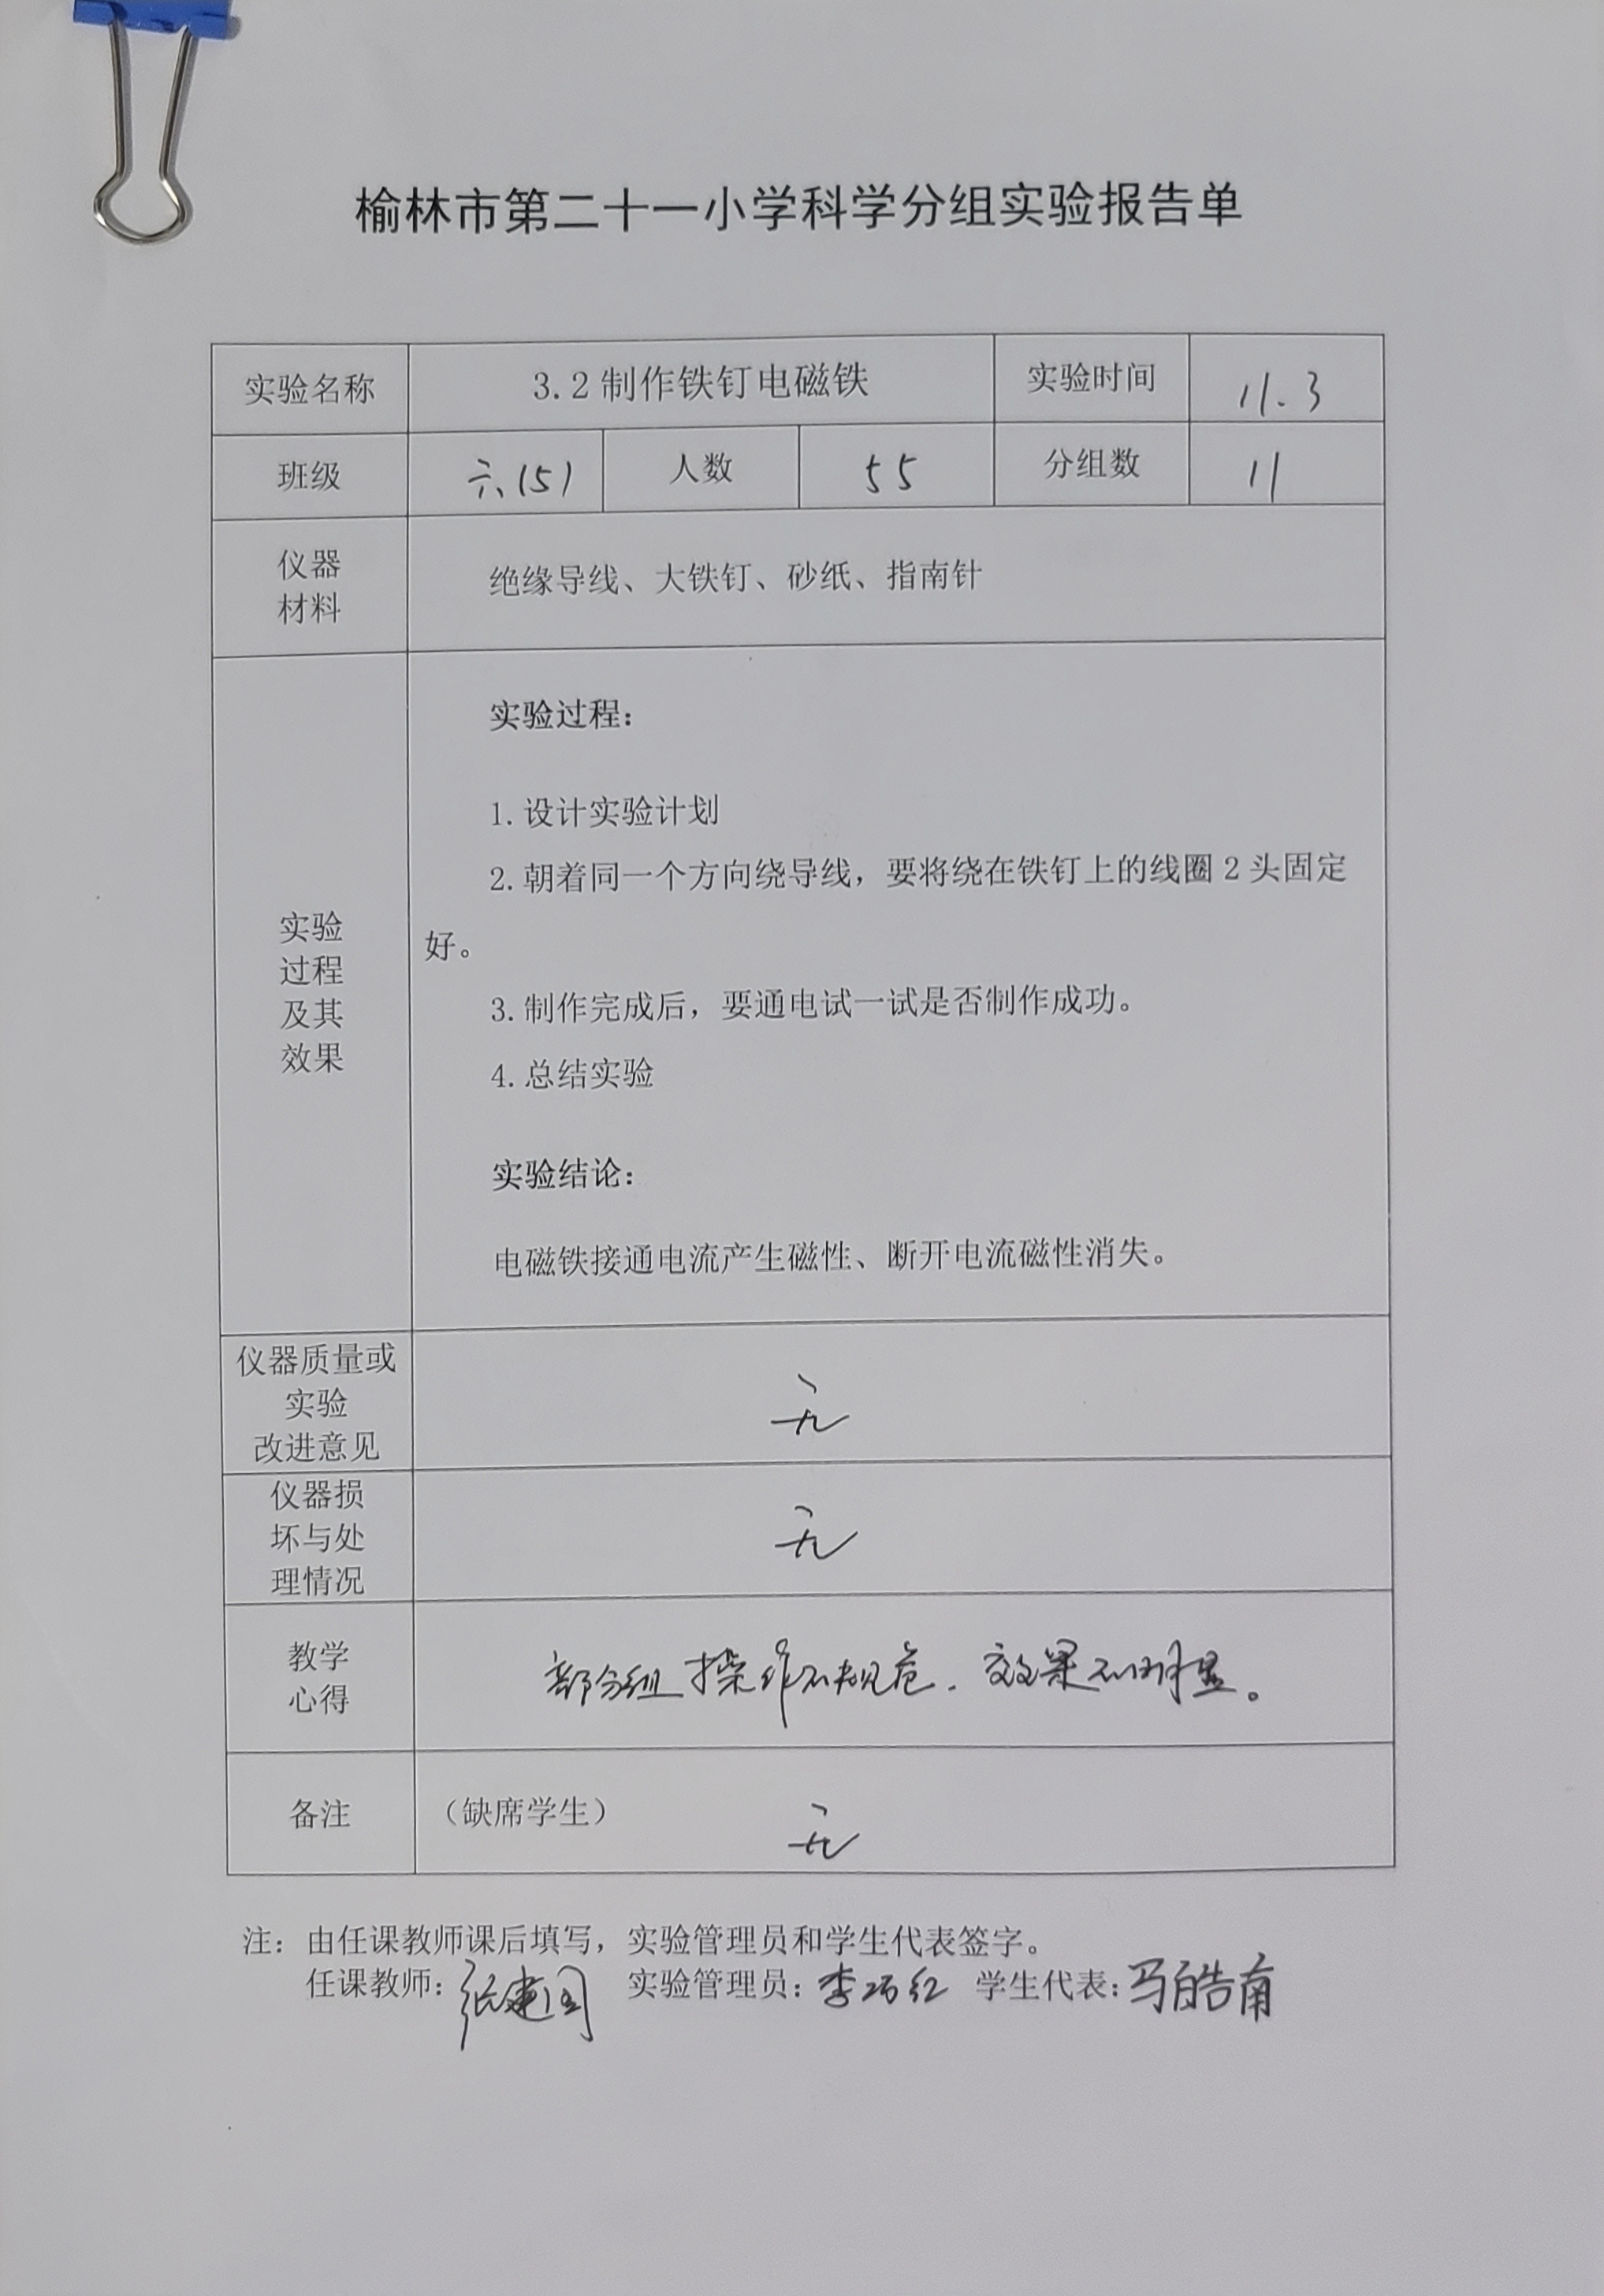 榆林市第二十一小学科学分组实验报告单
实验名称 3.2 制作铁钉电磁铁 实验时间 11.3
班级 六(5) 人数 55 分组数 11
仪器
材料
绝缘导线、大铁钉、砂纸、指南针
实验
过程
及其
效果
实验过程：
1.设计实验计划
2.朝着同一个方向绕导线，要将绕在铁钉上的线圈 2 头固定
好。
3.制作完成后，要通电试一试是否制作成功。
4.总结实验
实验结论：
电磁铁接通电流产生磁性、断开电流磁性消失。
仪器质量或
实验
改进意见
无
仪器损
坏与处
理情况
无
教学
心得
部分组操作不规范，效果不明显。
备注 （缺席学生） 无
注：由任课教师课后填写，实验管理员和学生代表签字。
任课教师：张建国 实验管理员：李巧红 学生代表：马皓南